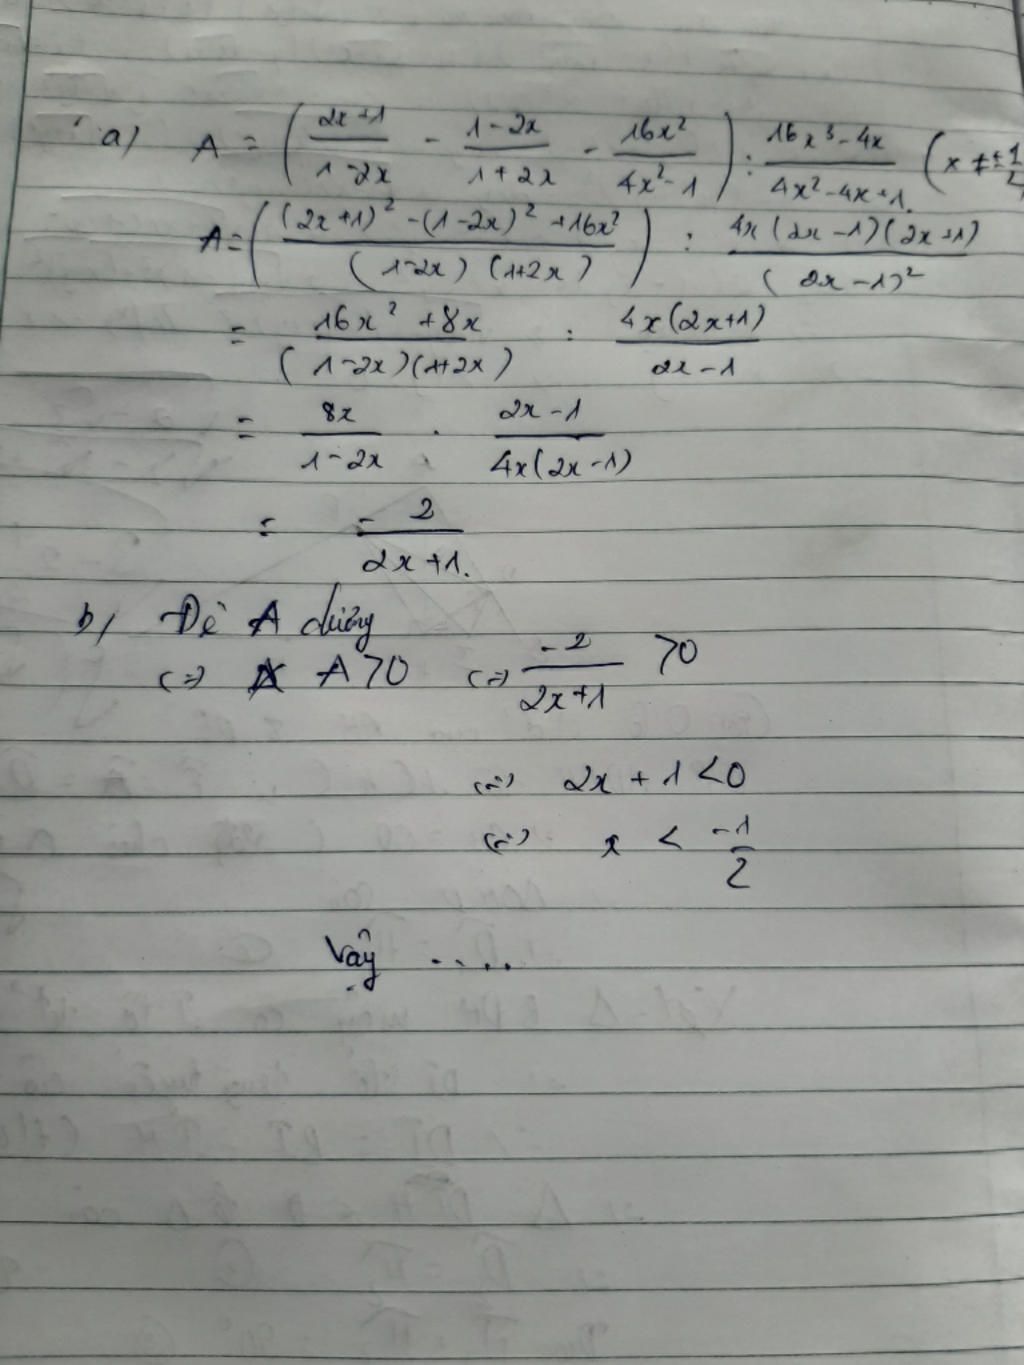 a) A = ( (2x+1)/(1-2x) - (1-2x)/(1+2x) - 16x²/(4x²-1) ) : (16x³-4x)/(4x²-4x+1). (x ≠ ±1/2
A = ( ((2x+1)² - (1-2x)² + 16x²)/((1-2x)(1+2x)) ) : (4x(2x-1)(2x+1))/((2x-1)²)
= (16x² + 8x)/((1-2x)(1+2x)) : (4x(2x+1))/(2x-1)
= 8x/(1-2x) . (2x-1)/(4x(2x-1))
= -2/(2x+1).
b, Để A dương
(=) A > 0 (=) -2/(2x+1) > 0
(=) 2x + 1 < 0
(=) x < -1/2
Vậy .....